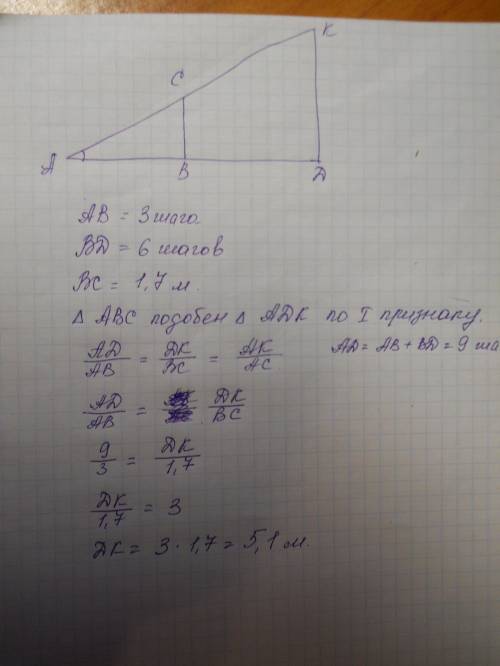 K
C
A
B
D
AB = 3 шага.
BD = 6 шагов
BC = 1,7 м.
Δ ABC подобен Δ ADK по I признаку.
AD/AB = DK/BC = AK/AC AD = AB + BD = 9 ша
AD/AB = DK/BC
9/3 = DK/1,7
DK/1,7 = 3
DK = 3 · 1,7 = 5,1 м.